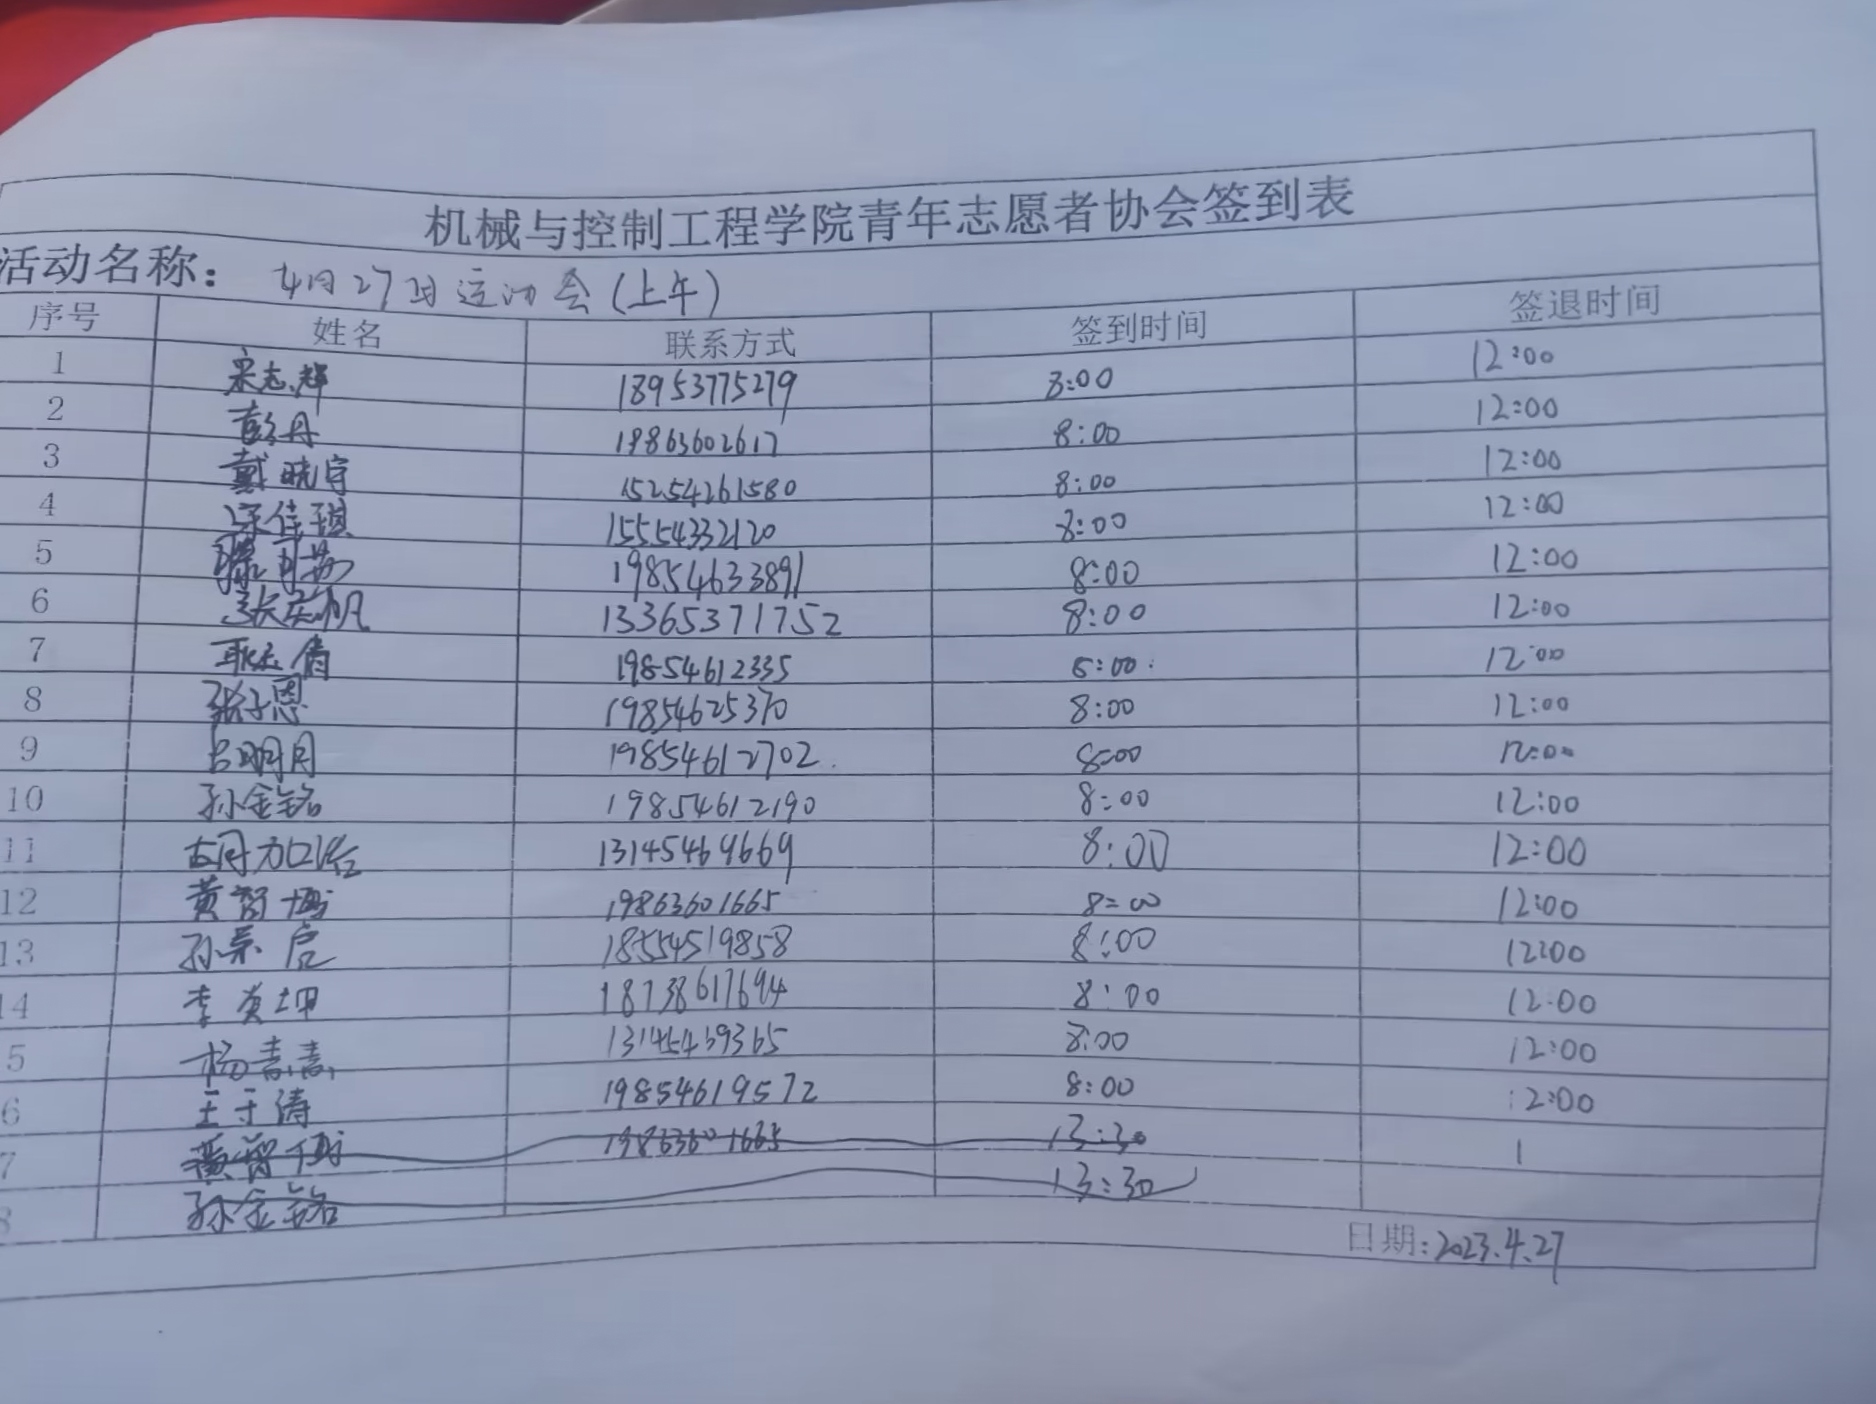 机械与控制工程学院青年志愿者协会签到表
活动名称： 4月27日运动会(上午)
序号 姓名 联系方式 签到时间 签退时间
1 宋志辉 18953775279 8:00 12:00
2 彭丹 19863602617 8:00 12:00
3 戴晓宇 15254261580 8:00 12:00
4 宋佳琪 15554332120 8:00 12:00
5 19854633891 8:00 12:00
6 13365371752 8:00 12:00
7 19854612335 8:00 12:00
8 张子恩 19854625370 8:00 12:00
9 吕明月 19854612702 8:00 12:00
10 孙金铭 19854612190 8:00 12:00
11 13145469669 8:00 12:00
12 黄智博 19863601665 8:00 12:00
13 孙景启 18554519858 8:00 12:00
14 李黄坤 18738617694 8:00 12:00
5 杨熹熹 13145439365 8:00 12:00
6 王于涛 19854619572 8:00 12:00
7 黄智博 19863601665 13:30
8 孙金铭 13:30
日期:2023.4.27